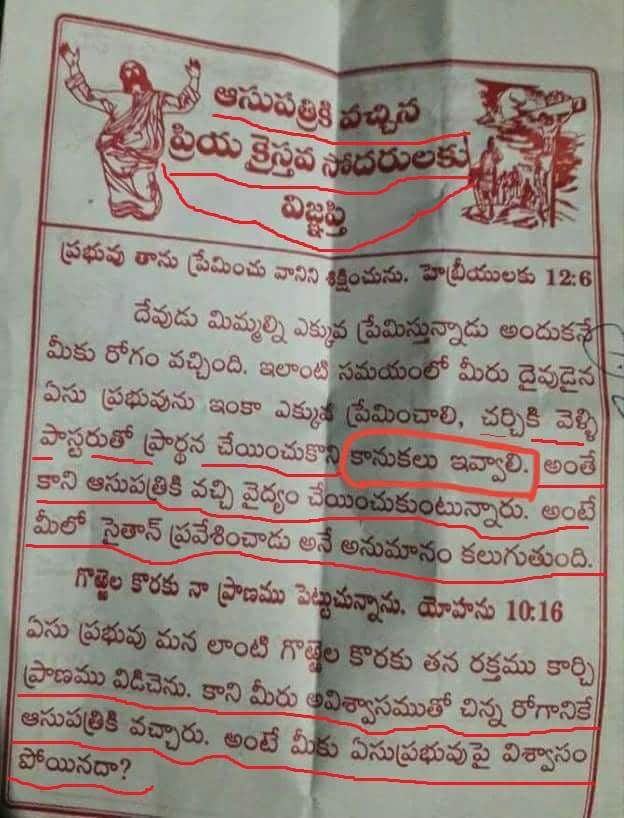 ఆసుపత్రికి వచ్చిన
ప్రియ క్రైస్తవ సోదరులకు
విజ్ఞప్తి
ప్రభువు తాను ప్రేమించు వానిని శిక్షించును. హెబ్రీయులకు 12:6
దేవుడు మిమ్మల్ని ఎక్కువ ప్రేమిస్తున్నాడు అందుకనే
మీకు రోగం వచ్చింది. ఇలాంటి సమయంలో మీరు దైవుడైన
ఏసు ప్రభువును ఇంకా ఎక్కువ ప్రేమించాలి, చర్చికి వెళ్ళి
పాస్టరుతో ప్రార్థన చేయించుకొని కానుకలు ఇవ్వాలి. అంతే
కాని ఆసుపత్రికి వచ్చి వైద్యం చేయించుకుంటున్నారు. అంటే
మీలో సైతాన్ ప్రవేశించాడు అనే అనుమానం కలుగుతుంది.
గొఱ్ఱెల కొరకు నా ప్రాణము పెట్టుచున్నాను. యోహను 10:16
ఏసు ప్రభువు మన లాంటి గొఱ్ఱెల కొరకు తన రక్తము కార్చి
ప్రాణము విడిచెను. కాని మీరు అవిశ్వాసముతో చిన్న రోగానికే
ఆసుపత్రికి వచ్చారు. అంటే మీకు ఏసుప్రభువుపై విశ్వాసం
పోయినదా?